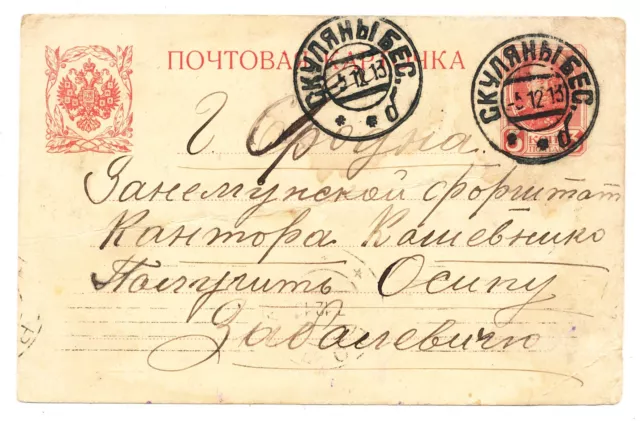 ПОЧТОВАЯ КАРТОЧКА
СКУЛЯНЫ БЕС.
-5.12.13
б
СКУЛЯНЫ БЕС.
-5.12.13
б
Г. Гродна
Занемунской форштат
Кантора Кошевнико
Получить Осипу
Забалевичю